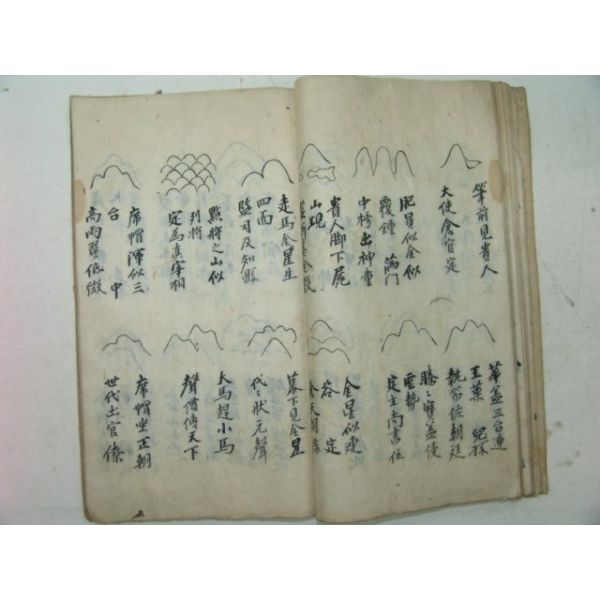 筆前見貴人
大使倉官定
肥員似金似
覆鍾 滿門
中拷出神童
貴人脚下屍
山現
走馬金星生
四面
監司及知縣
點將之山似
列將
定為真宰相
席帽渾似三
台 中
高両翼低微
華盖三台連
玉葉
執笏佐朝廷
勝之寶盖使
雲勢
定主尚書位
金星似連
容 定
幕下見金星
代々狀元聲
大馬趕小馬
聲價傳天下
席帽坐正朝
世代出官僚